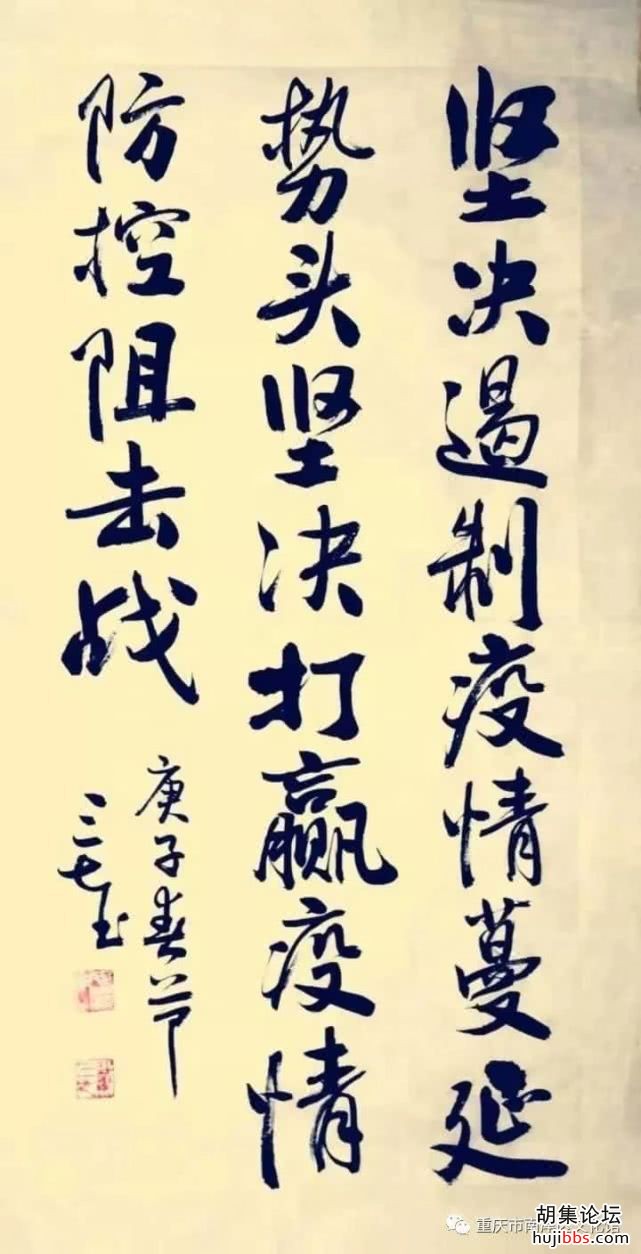 坚决遏制疫情蔓延
势头坚决打赢疫情
防控阻击战
庚子春节
三七玉
重庆市南岸区文化馆
胡集论坛
hujibbs.com